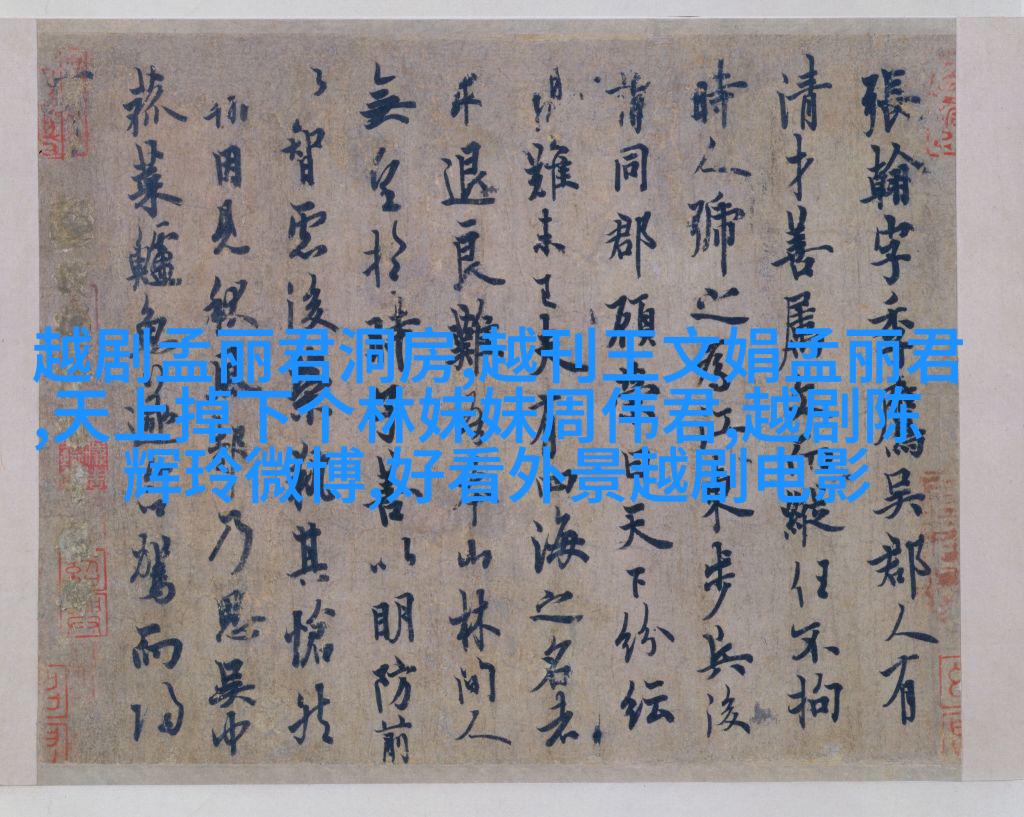 張翰字季鷹吳郡人有
清才善屬文而縱任不拘
時人號之為江東步兵後
謂同郡顧榮曰天下紛紜
難未已夫有四海之名者
求退良難吾本山林間人
無望於時子善以明防前
以智慮後榮執其愴然
翰因見秋風起乃思吳中
菰菜鱸魚遂命駕而歸
越剧孟丽君洞房,越刊王文娟孟丽君
,天上掉下个林妹妹周伟君,越剧陈
辉玲微博,好看外景越剧电影